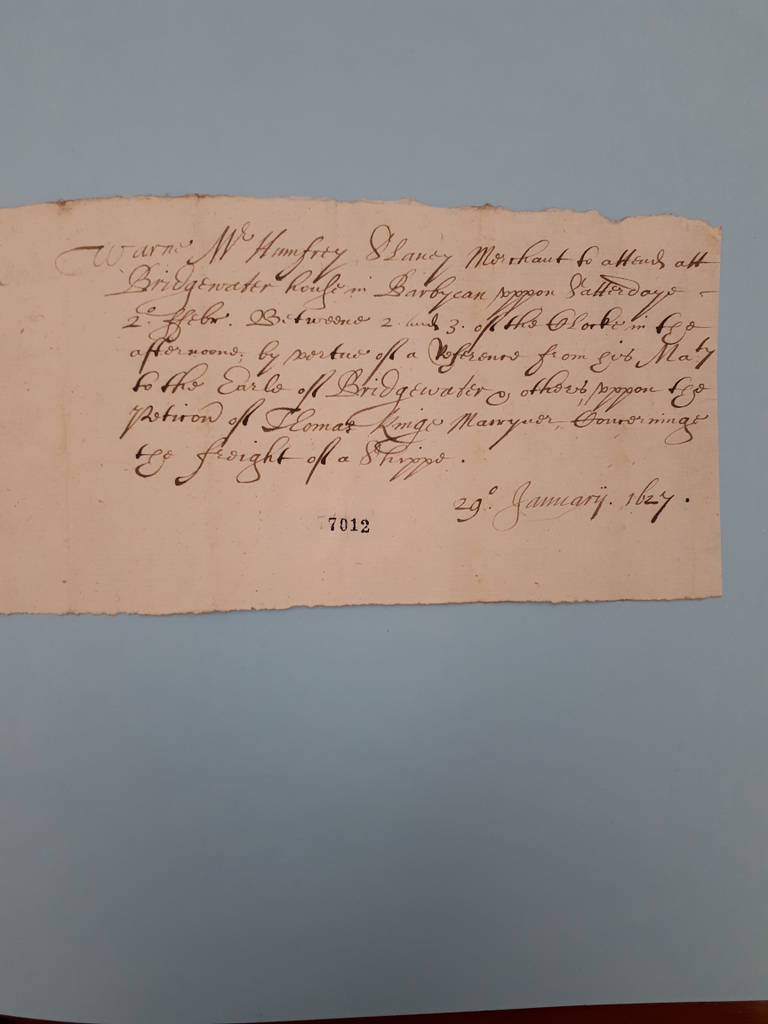 Warne Mr Humfrey Slaney Merchant to attend att
Bridgewater house in Barbycan vppon Satterdaye -
2o. ffebr. Betweene 2 and 3. of the Clocke in the
afternoone; by vertue of a Reference from his Maty
to the Earle of Bridgewater & others, vppon the
Peticon of Thomas Kinge Marryner, Concerninge
the freight of a Shippe.
29o. Januarij. 1627.
7012